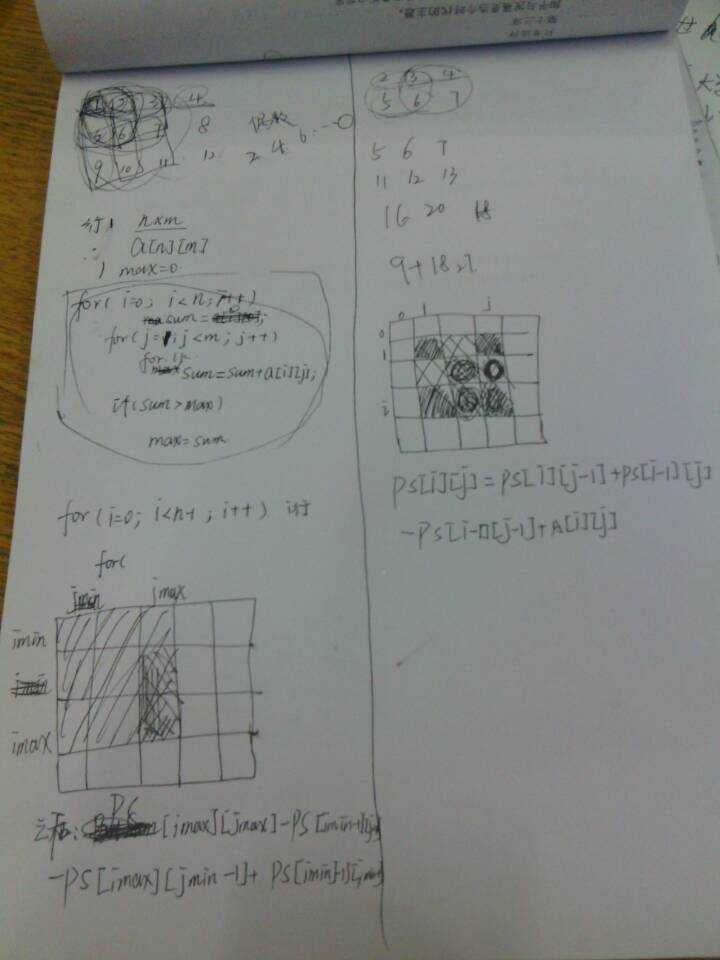 1 2 3 4
5 6 7 8 偶数
9 10 11 12 2 4 6 … 0
行 n×m
∴ a[n][m]
) max=0
for( i=0; i<n; i++)
sum = 0
for(j=1; j<m; j++)
for ij
sum=sum+a[i][j];
if(sum>max)
max=sum
for(i=0; i<n+; i++) 行
for(
jmin jmax
imin
imax
PS
之和: [imax][jmax]-PS[imin-1][j
-PS[imax][jmin-1]+ PS[imin-1][jmin-1]
2 3 4
5 6 7
5 6 7
11 12 13
16 20 18
9+18
0 1 j
0
1
i
PS[i][j]=PS[i][j-1]+PS[i-1][j]
-PS[i-1][j-1]+A[i][j]